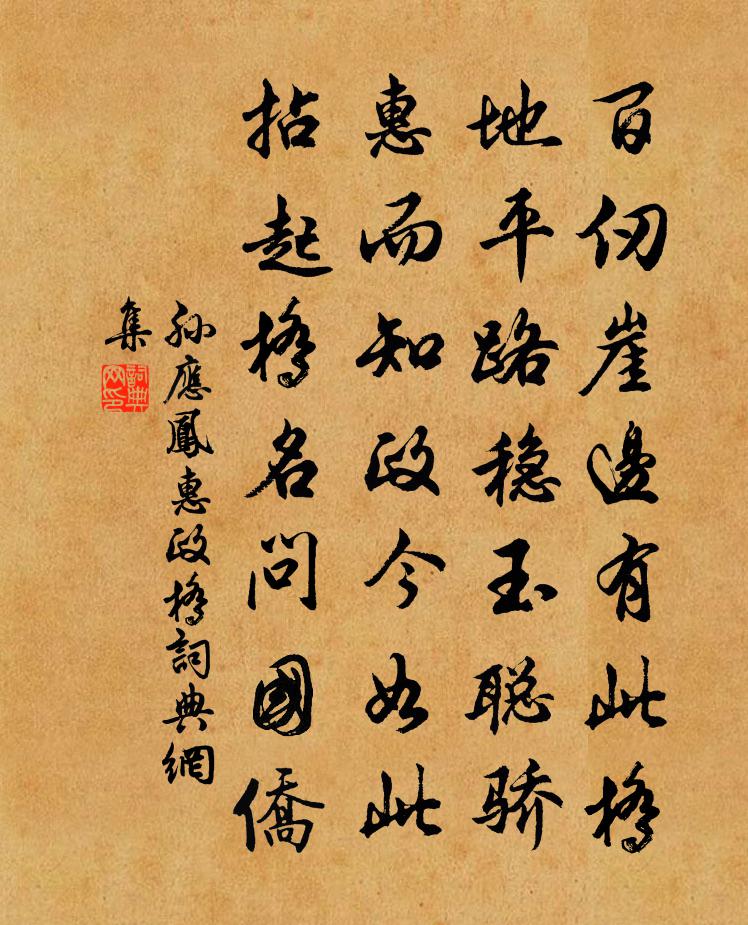 百仞崖邊有此橋
地平路稳玉聪骄
惠而知政今如此
拈起橋名問國僑
孙應鳳惠政橋詞典網
集
詞典
网印